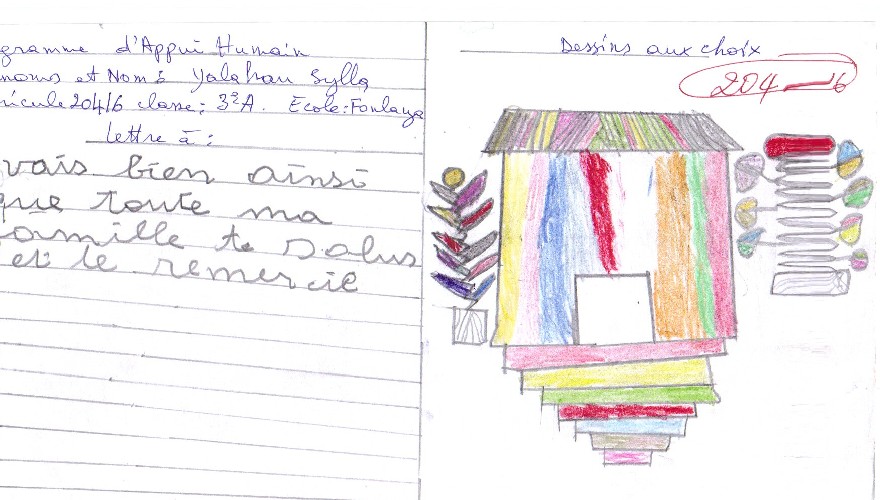 gramme d'Appui Humain
noms et Nom: Yalahan Sylla
ricule 20416 classe: 3ºA. Ecole: Foulaya
Lettre à :
vais bien ainsi
que toute ma
amille te Salus
et te remercie
Dessins aux choix
204—16